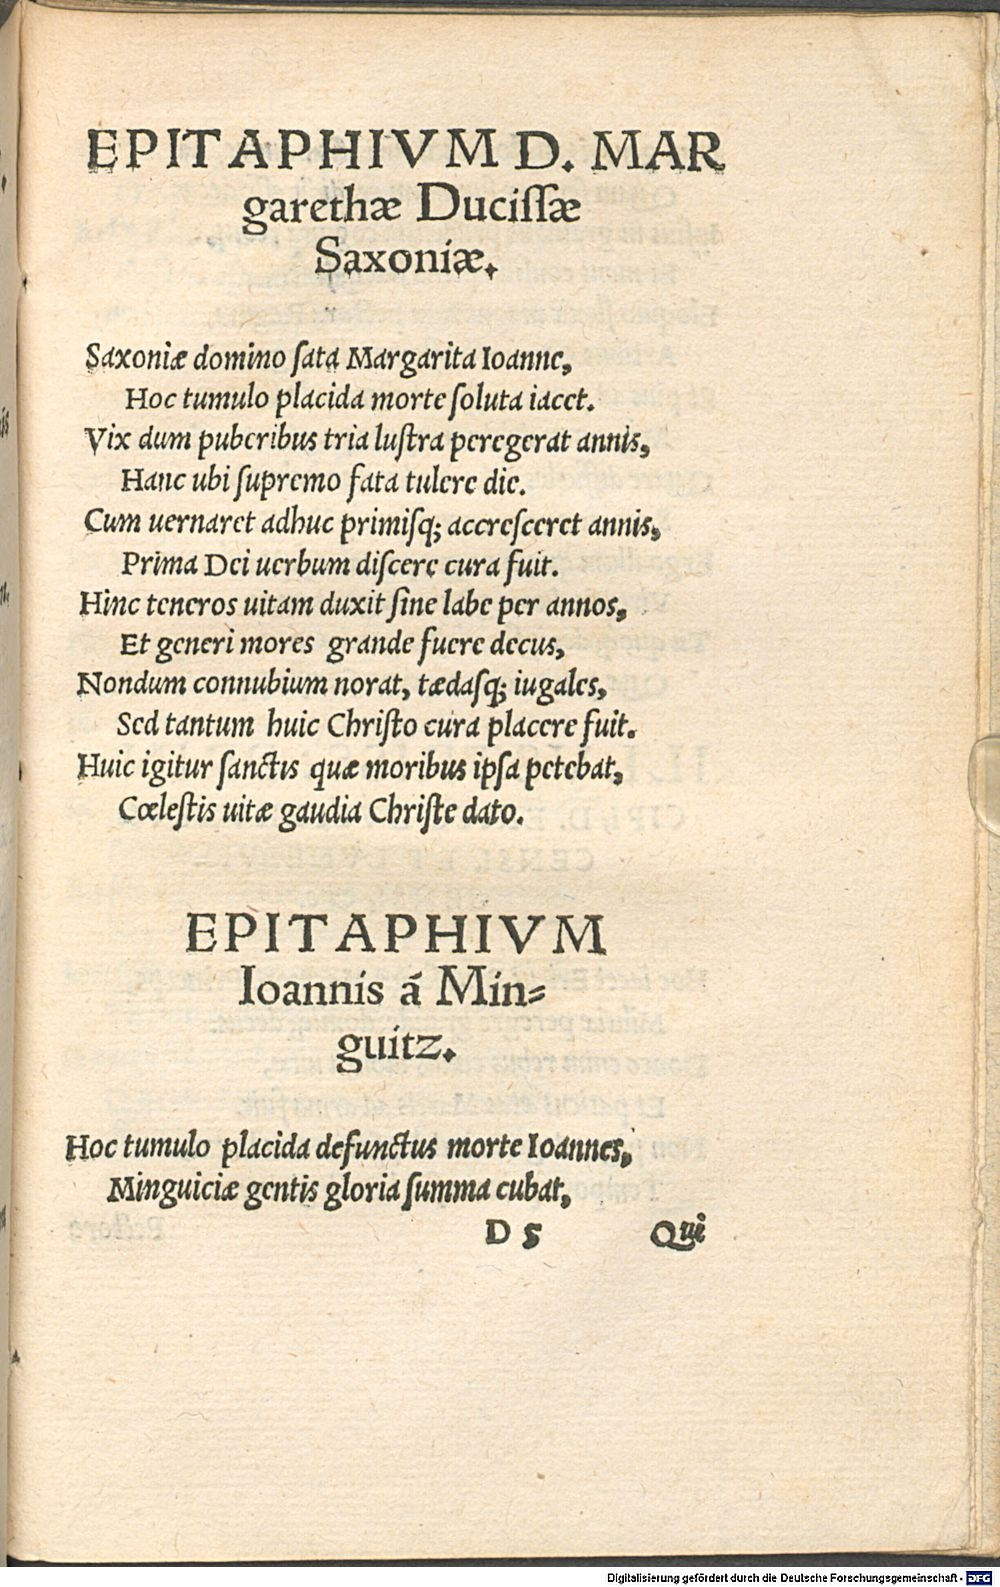 EPITAPHIVM D. MAR
garethæ Ducissæ
Saxoniæ.
Saxoniæ domino sata Margarita Ioanne,
Hoc tumulo placida morte soluta iacet.
Vix dum puberibus tria lustra peregerat annis,
Hanc ubi supremo fata tulere die.
Cum uernaret adhuc primisq; accresceret annis,
Prima Dei uerbum discere cura fuit.
Hinc teneros uitam duxit sine labe per annos,
Et generi mores grande fuere decus,
Nondum connubium norat, tædasq; iugales,
Sed tantum huic Christo cura placere fuit.
Huic igitur sanctis quæ moribus ipsa petebat,
Cœlestis uitæ gaudia Christe dato.
EPITAPHIVM
Ioannis á Min⸗
guitz.
Hoc tumulo placida defunctus morte Ioannes,
Minguiciæ gentis gloria summa cubat,
D 5 Qui
Digitalisierung gefördert durch die Deutsche Forschungsgemeinschaft - DFG